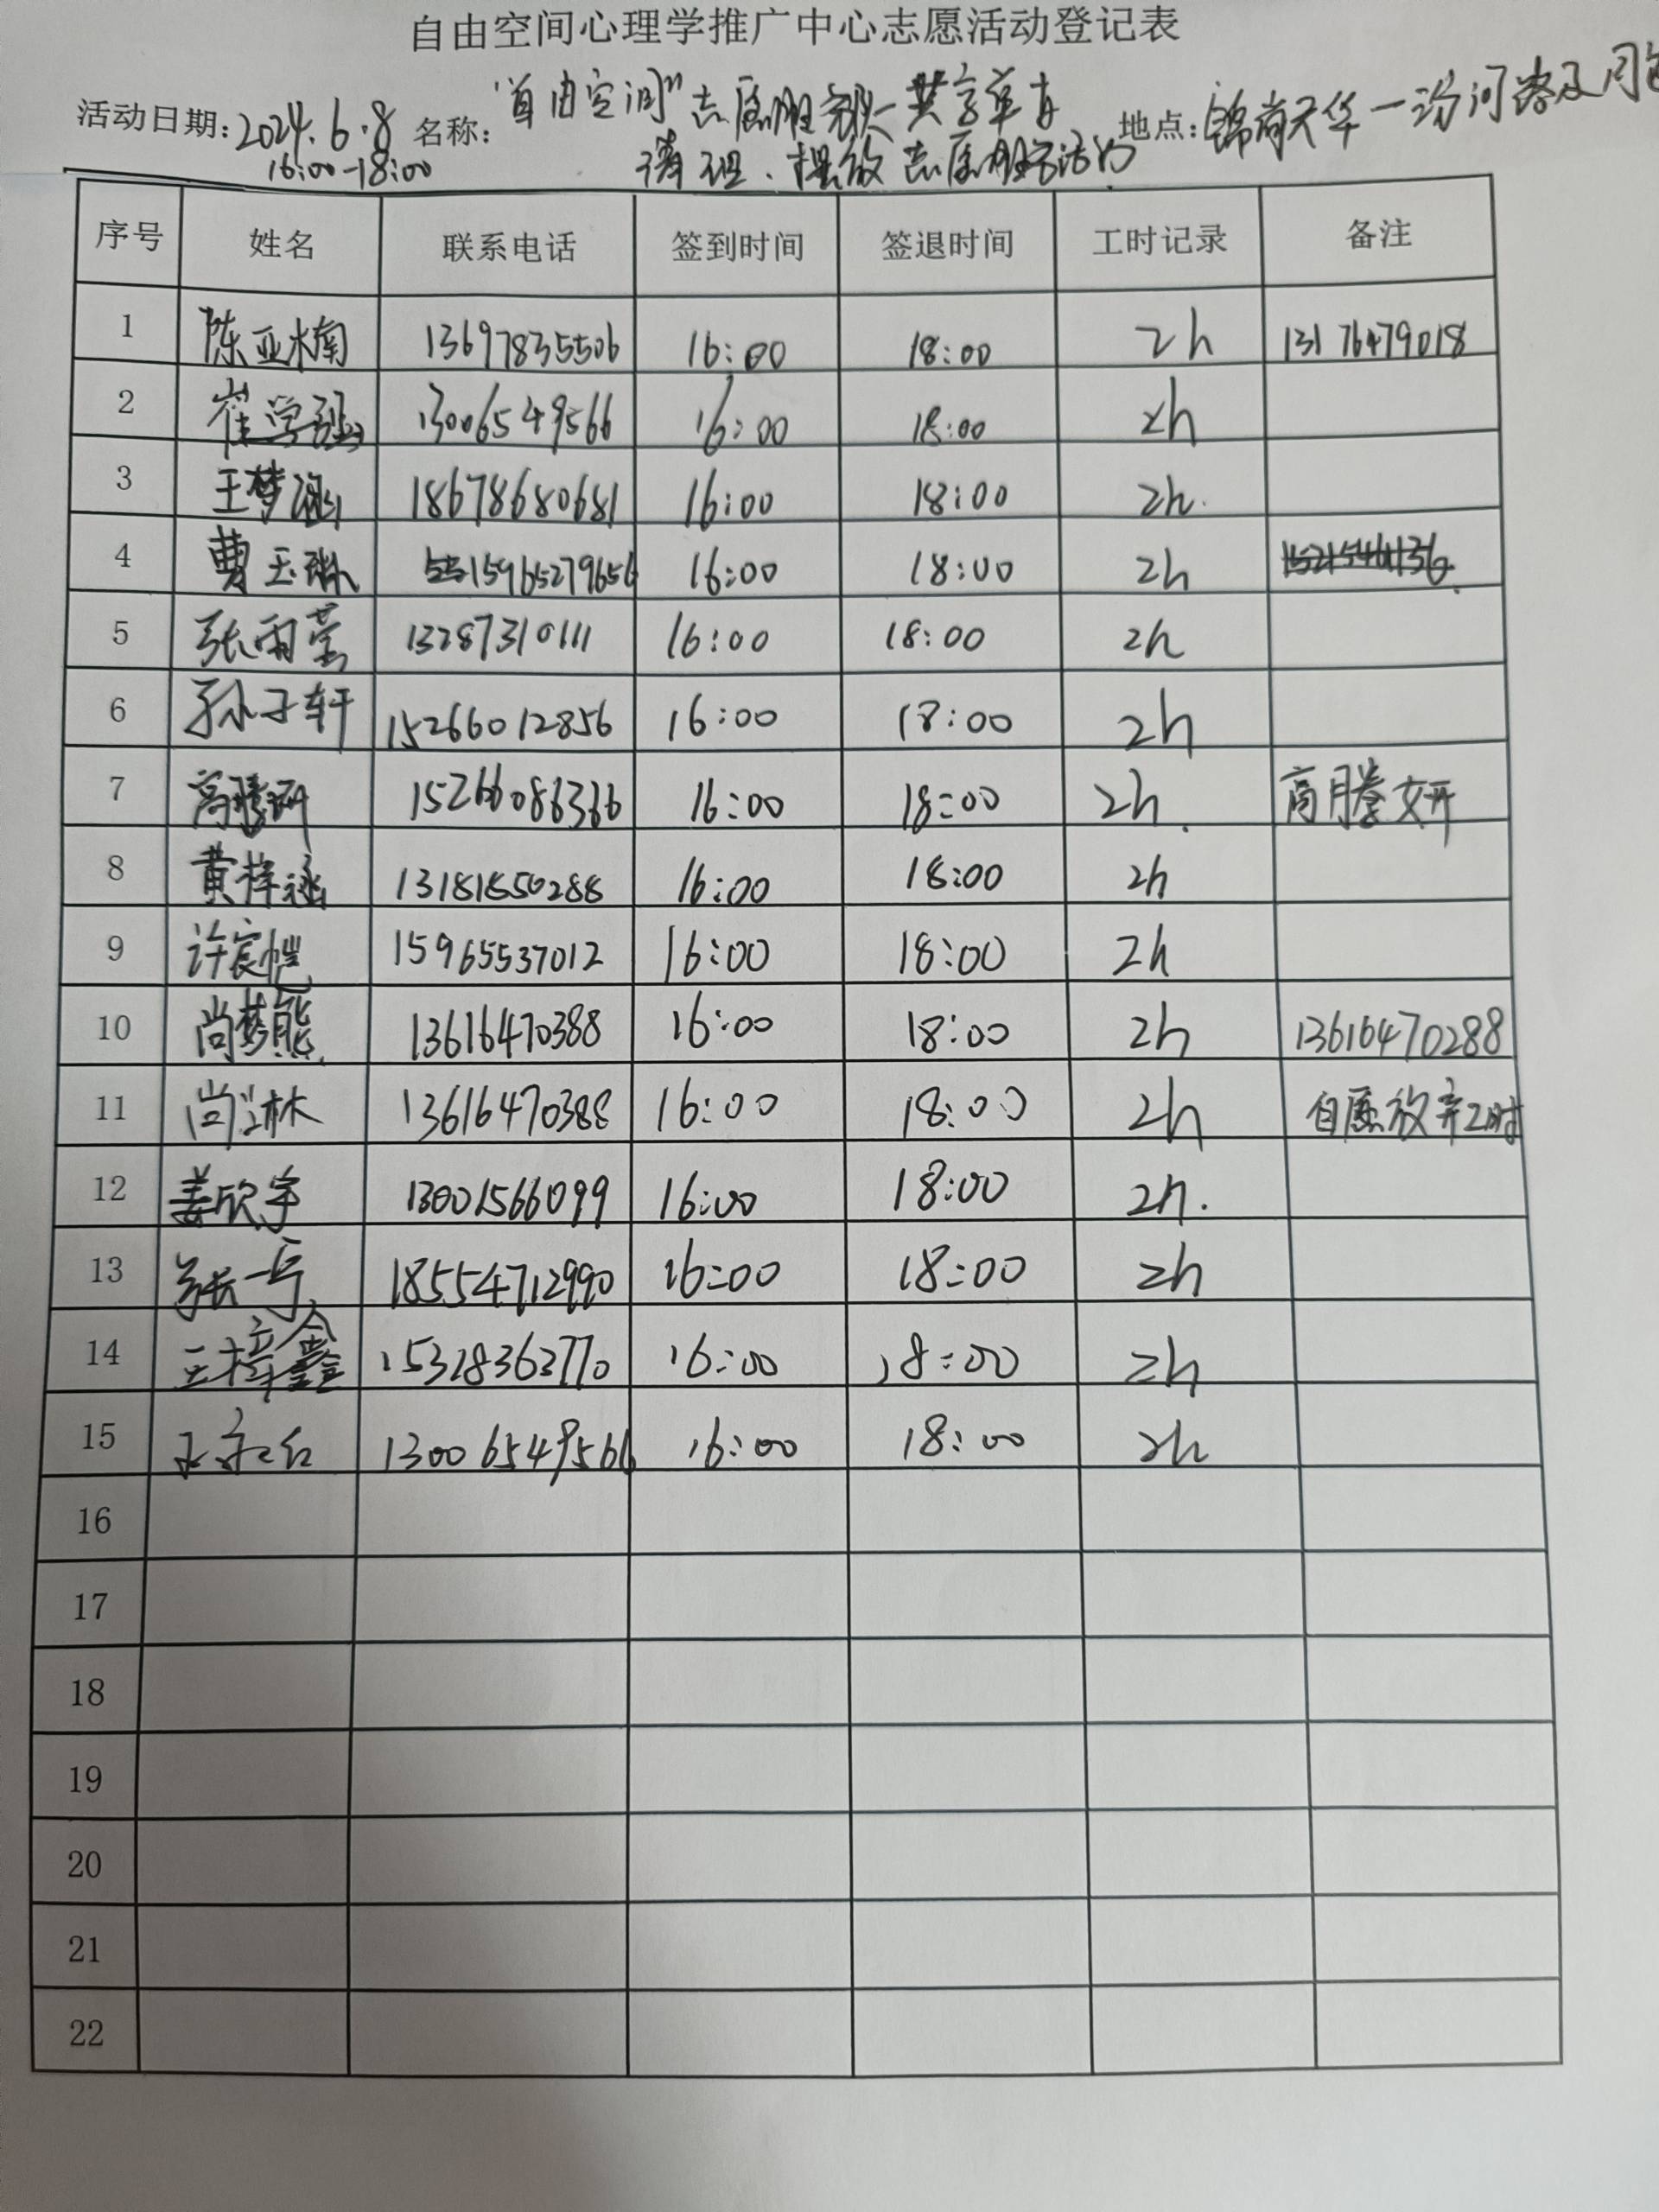 自由空间心理学推广中心志愿活动登记表
活动日期：2024.6.8 名称："自由空间"志愿服务队—共享单车 地点：锦尚天华—汾河路及周
16:00-18:00 清理、摆放志愿服务活动
序号 姓名 联系电话 签到时间 签退时间 工时记录 备注
1 陈亚楠 13697835506 16:00 18:00 2h 13176479018
2 崔学 13006549566 16:00 18:00 2h
3 王梦涵 18678680681 16:00 18:00 2h.
4 曹玉琳 15965279656 16:00 18:00 2h
5 张雨莹 13287310111 16:00 18:00 2h
6 孙子轩 15266012856 16:00 18:00 2h
7 高媵妍 15266086366 16:00 18:00 2h. 高媵妍
8 黄梓涵 13181850288 16:00 18:00 2h
9 许宸恺 15965537012 16:00 18:00 2h
10 尚梦熊 13616470388 16:00 18:00 2h 13616470288
11 尚 林 13616470388 16:00 18:00 2h 自愿放弃工时
12 姜欣宇 13001566099 16:00 18:00 2h.
13 张一 18554712990 16:00 18:00 2h
14 王梓鑫 15328363770 16:00 18:00 2h
15 13006549566 16:00 18:00 2h
16
17
18
19
20
21
22